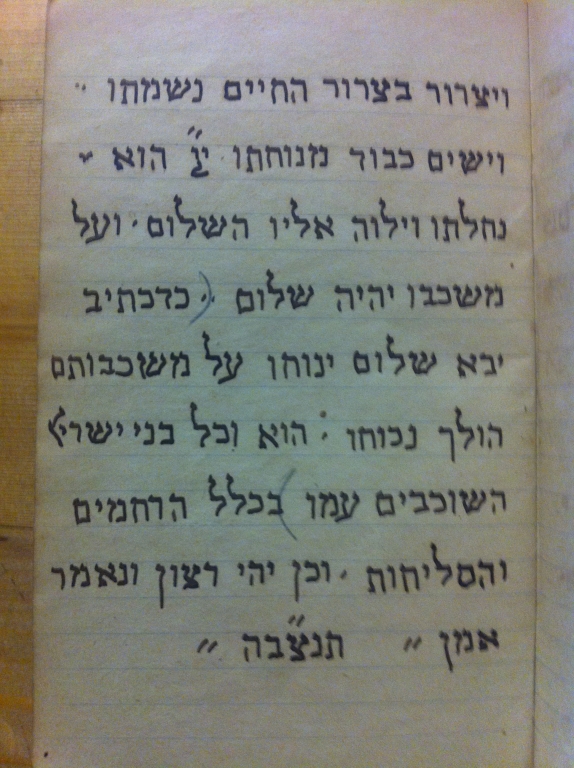 ויצרור בצרור החיים נשמתו ··
וישים כבוד מנוחתו י״י הוא ״
נחלתו וילוה אליו השלום · ועל
משכבו יהיה שלום ·· ( כדכתיב
יבא שלום ינוחו על משכבותם
הולך נכוחו : הוא וכל בני ישראל
השוכבים עמו ) בכלל הרחמים
והסליחות · וכן יהי רצון ונאמר
אמן ״ תנצ״בה ״